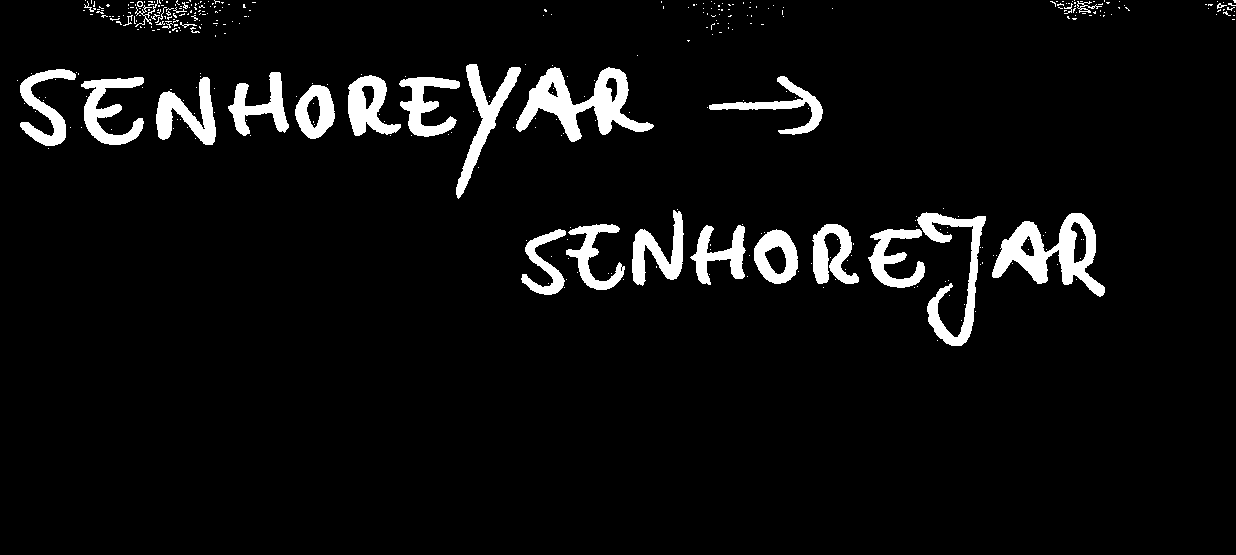 SENHOREYAR →
SENHOREJAR